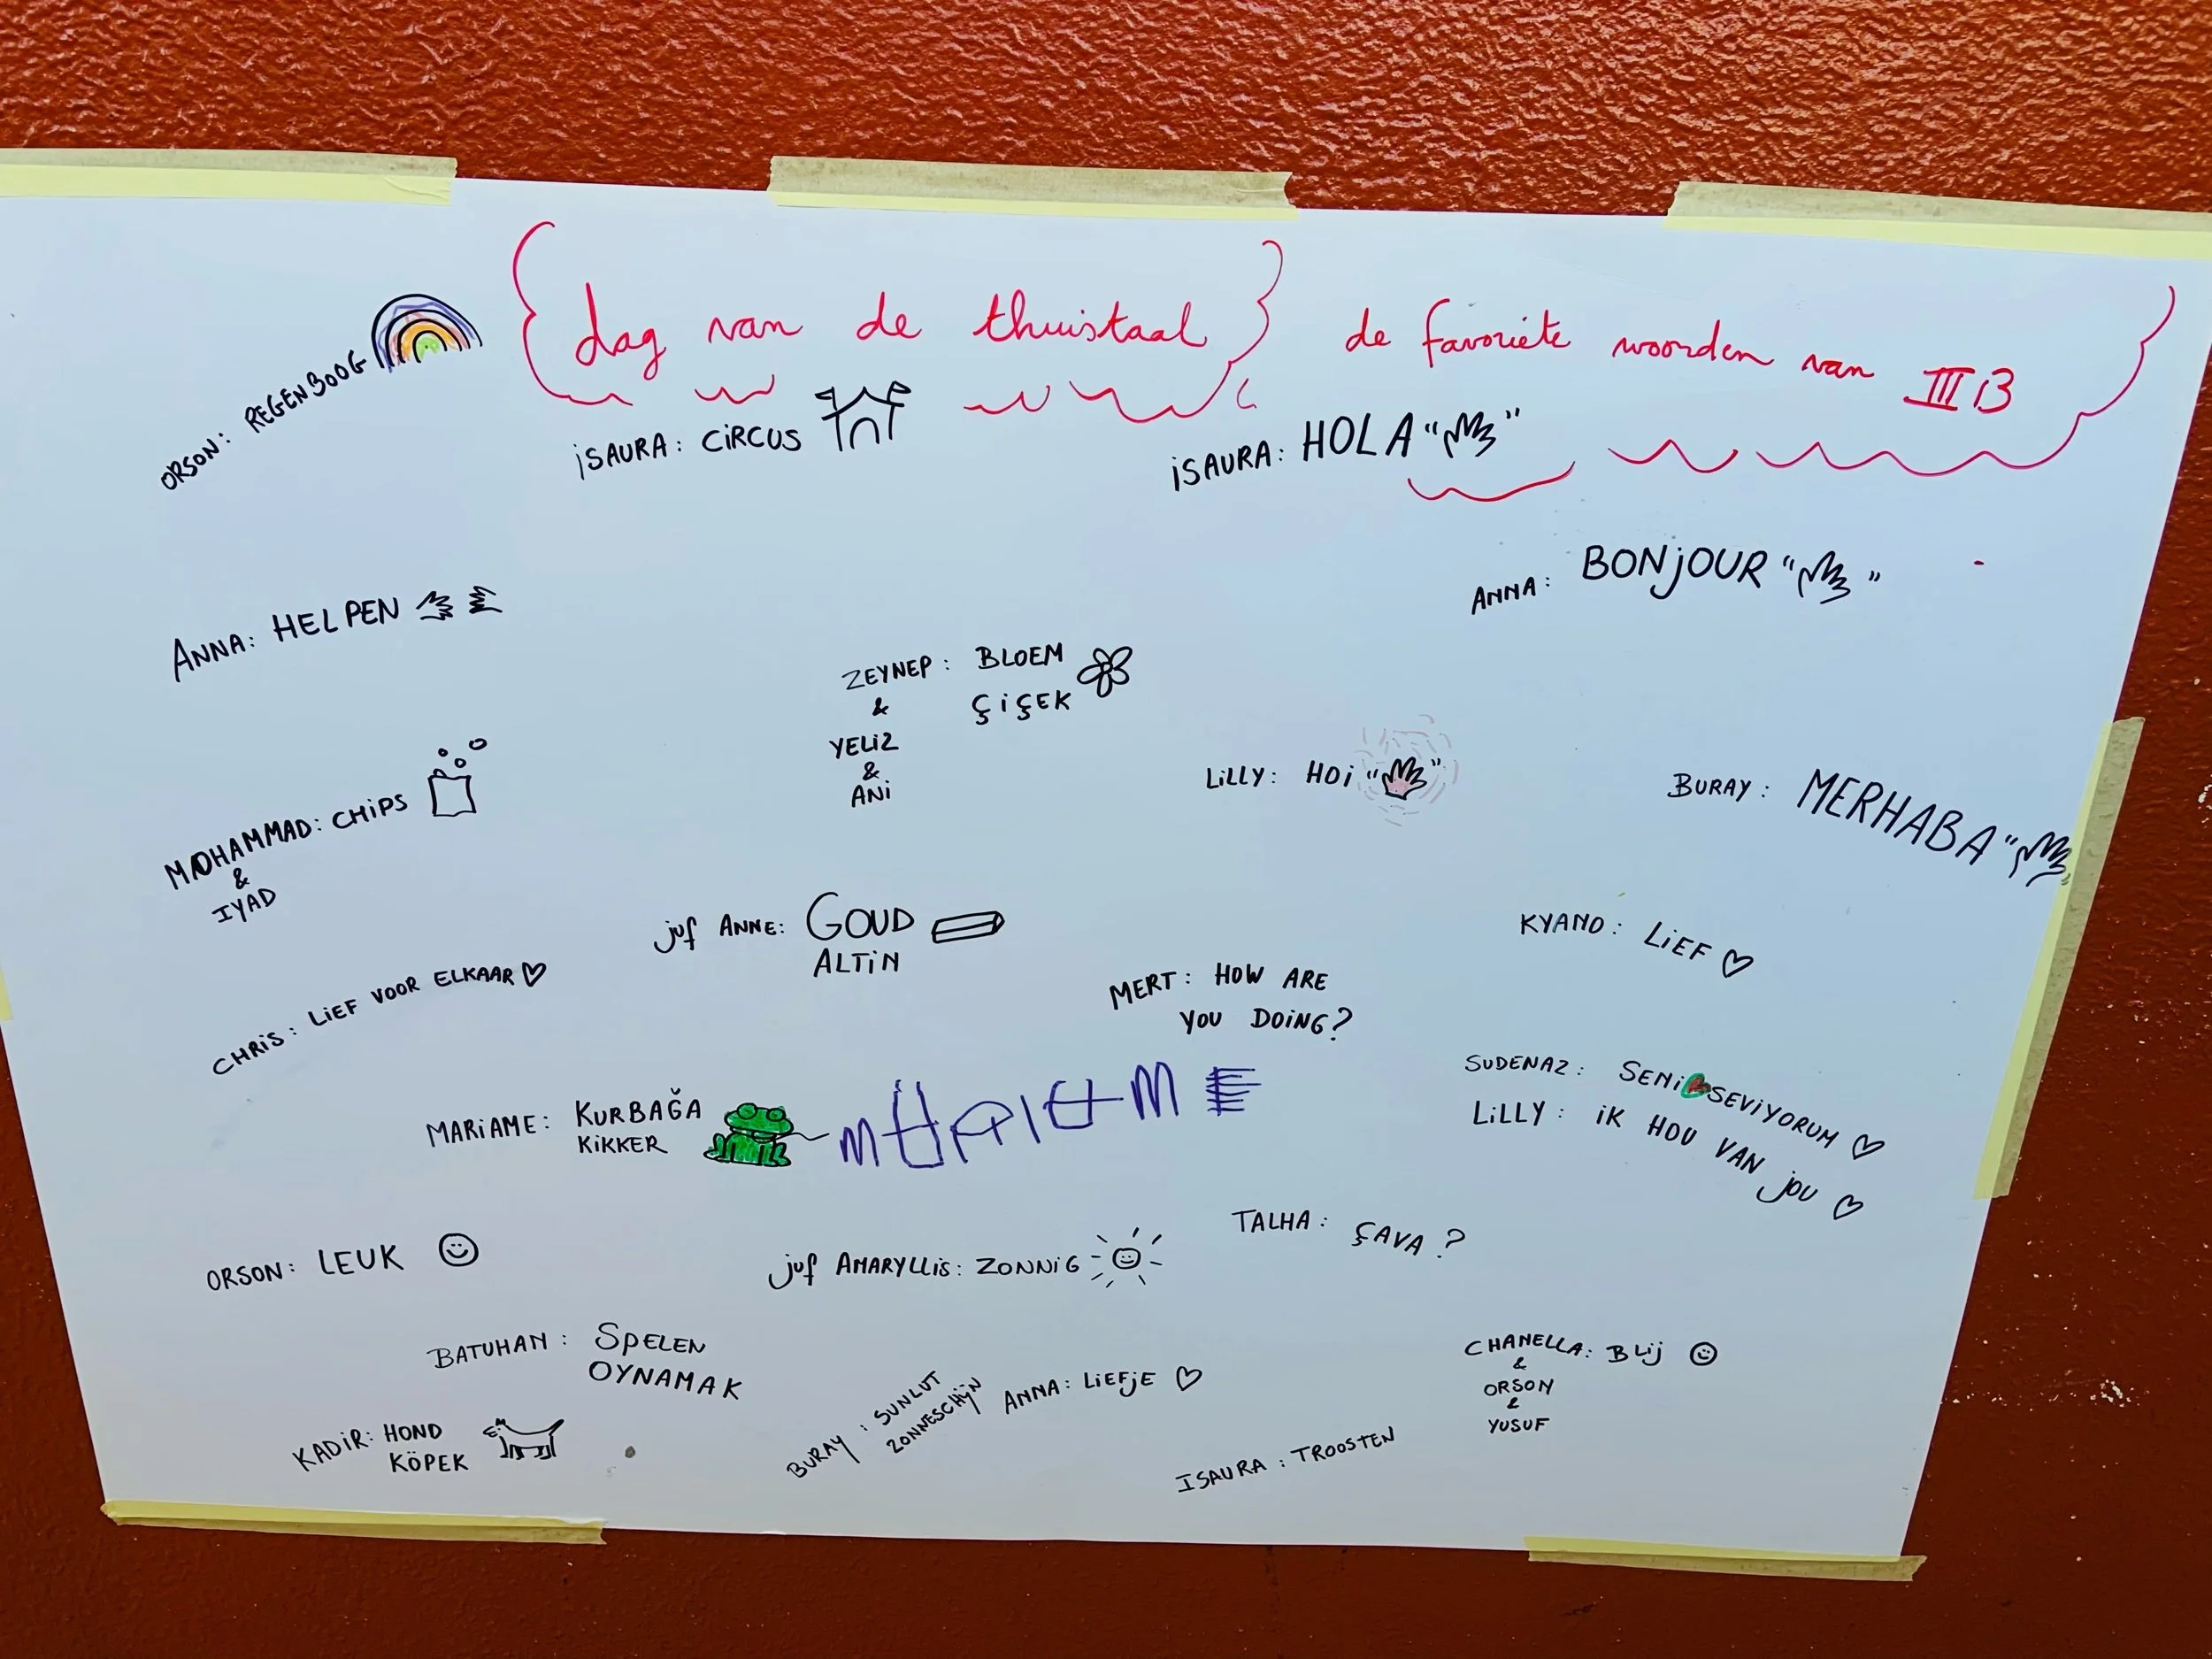 dag van de thuistaal
de favoriete woorden van III B
ORSON: REGENBOOG
iSAURA: CiRCUS
iSAURA: HOLA " "
ANNA: BONjOUR " "
ANNA: HELPEN
ZEYNEP: BLOEM
& ÇiÇEK
YELiZ
&
ANi
LiLLY: HOi " "
BURAY: MERHABA "
MOHAMMAD: CHiPS
&
IYAD
juf ANNE: GOUD
ALTiN
KYANO: LiEF
CHRiS: LiEF VOOR ELKAAR
MERT: HOW ARE
YOU DOiNG?
SUDENAZ: SENi SEViYORUM
LiLLY: iK HOU VAN jOU
MARiAME: KURBAĞA
KiKKER
MARIAME
TALHA: ÇAVA?
ORSON: LEUK
juf AMARYLLiS: ZONNiG
BATUHAN: SPELEN
OYNAMAK
CHANELLA: BLij
&
ORSON
&
YUSUF
KADiR: HOND
KÖPEK
BURAY: SUNLUT
ZONNESCHIJN
ANNA: LiEFjE
ISAURA: TROOSTEN